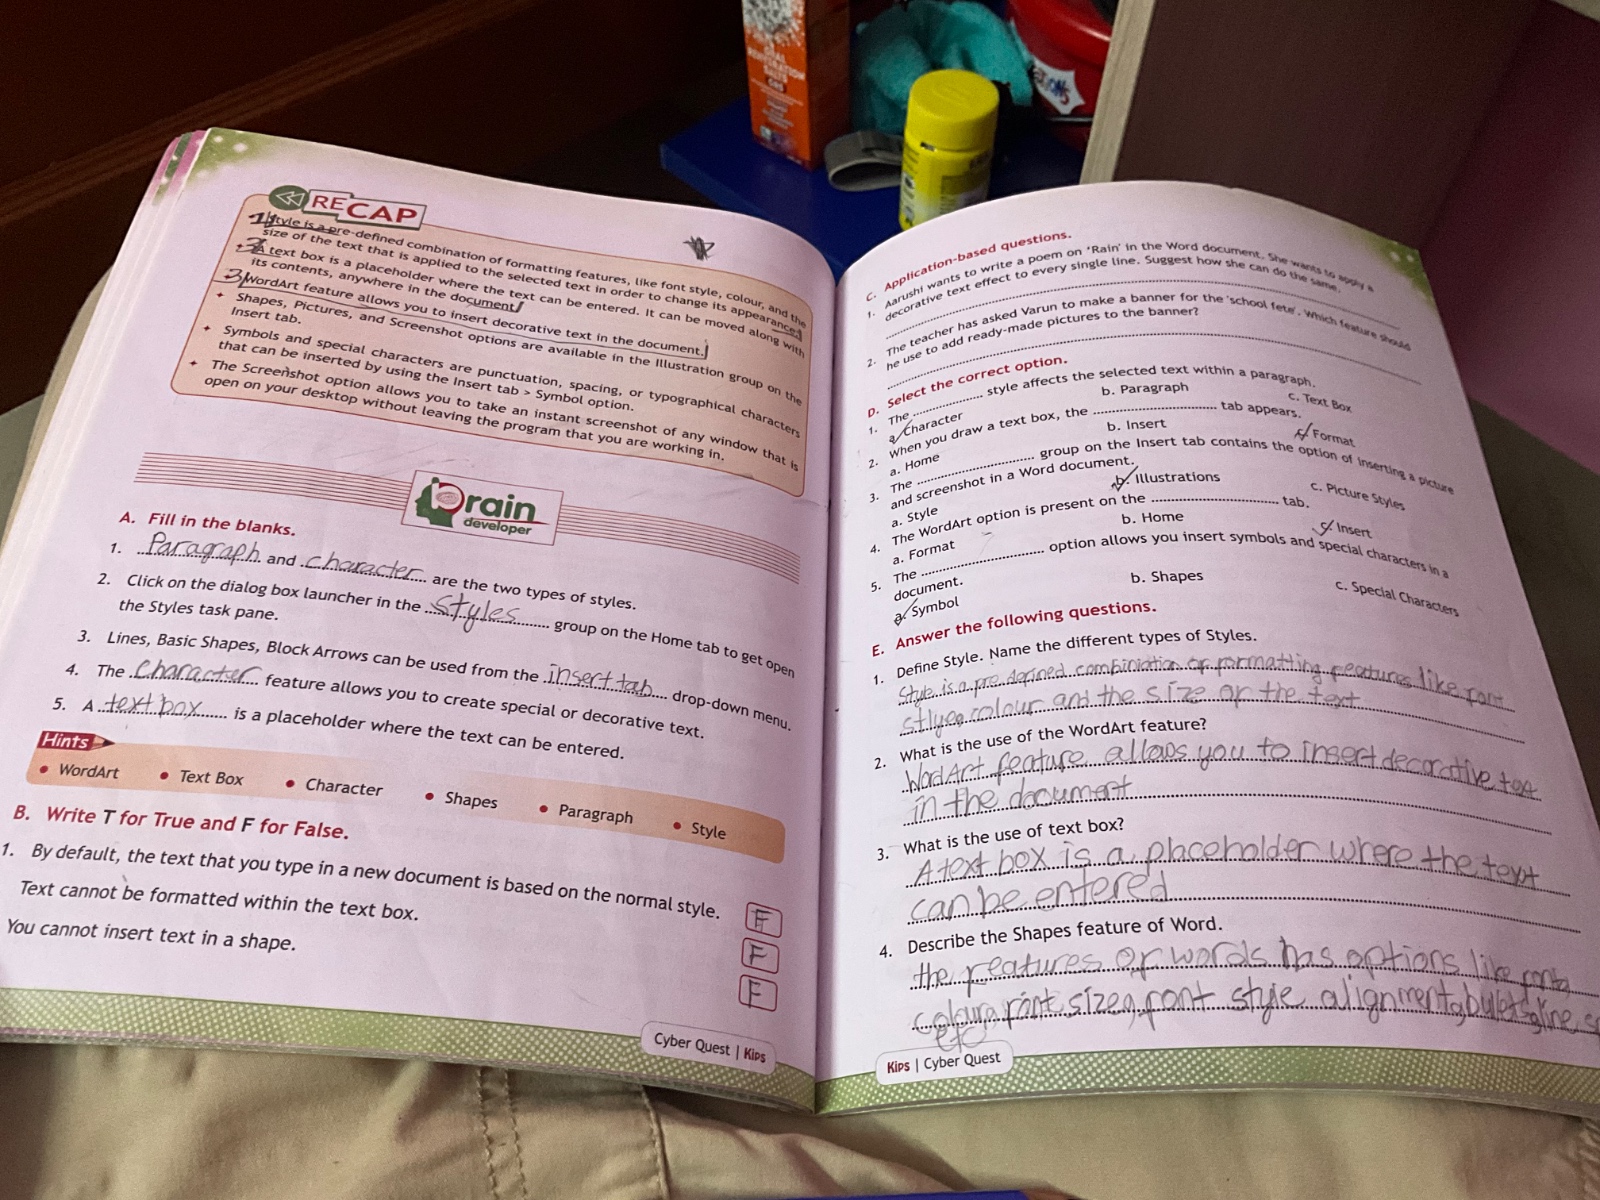 RECAP
1) Style is a pre-defined combination of formatting features, like font style, colour, and the
size of the text that is applied to the selected text in order to change its appearance.
A text box is a placeholder where the text can be entered. It can be moved along with
its contents, anywhere in the document.
3) WordArt feature allows you to insert decorative text in the document.
Shapes, Pictures, and Screenshot options are available in the Illustration group on the
Insert tab.
Symbols and special characters are punctuation, spacing, or typographical characters
that can be inserted by using the Insert tab > Symbol option.
The Screenshot option allows you to take an instant screenshot of any window that is
open on your desktop without leaving the program that you are working in.
Brain
developer
A. Fill in the blanks.
1. Paragraph and character are the two types of styles.
2. Click on the dialog box launcher in the styles group on the Home tab to get open
the Styles task pane.
3. Lines, Basic Shapes, Block Arrows can be used from the insert tab drop-down menu.
4. The character feature allows you to create special or decorative text.
5. A text box is a placeholder where the text can be entered.
Hints
• WordArt • Text Box • Character • Shapes • Paragraph • Style
B. Write T for True and F for False.
1. By default, the text that you type in a new document is based on the normal style. F
Text cannot be formatted within the text box. F
You cannot insert text in a shape. F
Cyber Quest | Kips
C. Application-based questions.
1. Aarushi wants to write a poem on 'Rain' in the Word document. She wants to apply a
decorative text effect to every single line. Suggest how she can do the same.
2. The teacher has asked Varun to make a banner for the 'school fete'. Which feature should
he use to add ready-made pictures to the banner?
D. Select the correct option.
1. The .................... style affects the selected text within a paragraph.
a. Character b. Paragraph c. Text Box
2. When you draw a text box, the .................... tab appears.
a. Home b. Insert c. Format
3. The .................... group on the Insert tab contains the option of inserting a picture
and screenshot in a Word document.
a. Style b. Illustrations c. Picture Styles
4. The WordArt option is present on the .................... tab.
a. Format b. Home c. Insert
5. The .................... option allows you insert symbols and special characters in a
document.
a. Symbol b. Shapes c. Special Characters
E. Answer the following questions.
1. Define Style. Name the different types of Styles.
Style is a pre defined combiniation of formatting features like font
stlye, colour and the size of the text
2. What is the use of the WordArt feature?
WordArt feature allows you to insert decorative text
in the document
3. What is the use of text box?
A text box is a placeholder where the text
can be entered
4. Describe the Shapes feature of Word.
the features of words has options like
colour, font size, font style alignment
etc
Kips | Cyber Quest